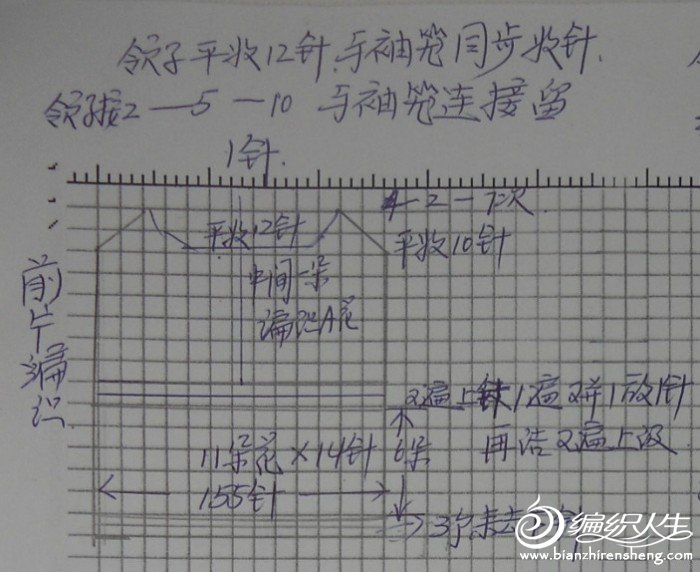 领子平收12针.与袖笼同步收针.
领子按2—5—10 与袖笼连接留
1针.
4—2—7次
平收12针
平收10针
中间一朵
编织A花
前片编织
2遍上针 1遍2并1放1针
再洁2遍上
11朵花×14针
6朵
155针
3
编织人生
www.bianzhirensheng.com